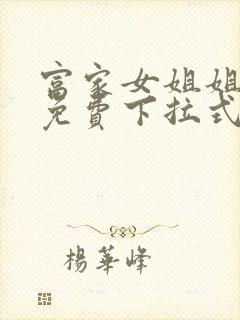 富家女姐姐
免費下拉式
楊華峰